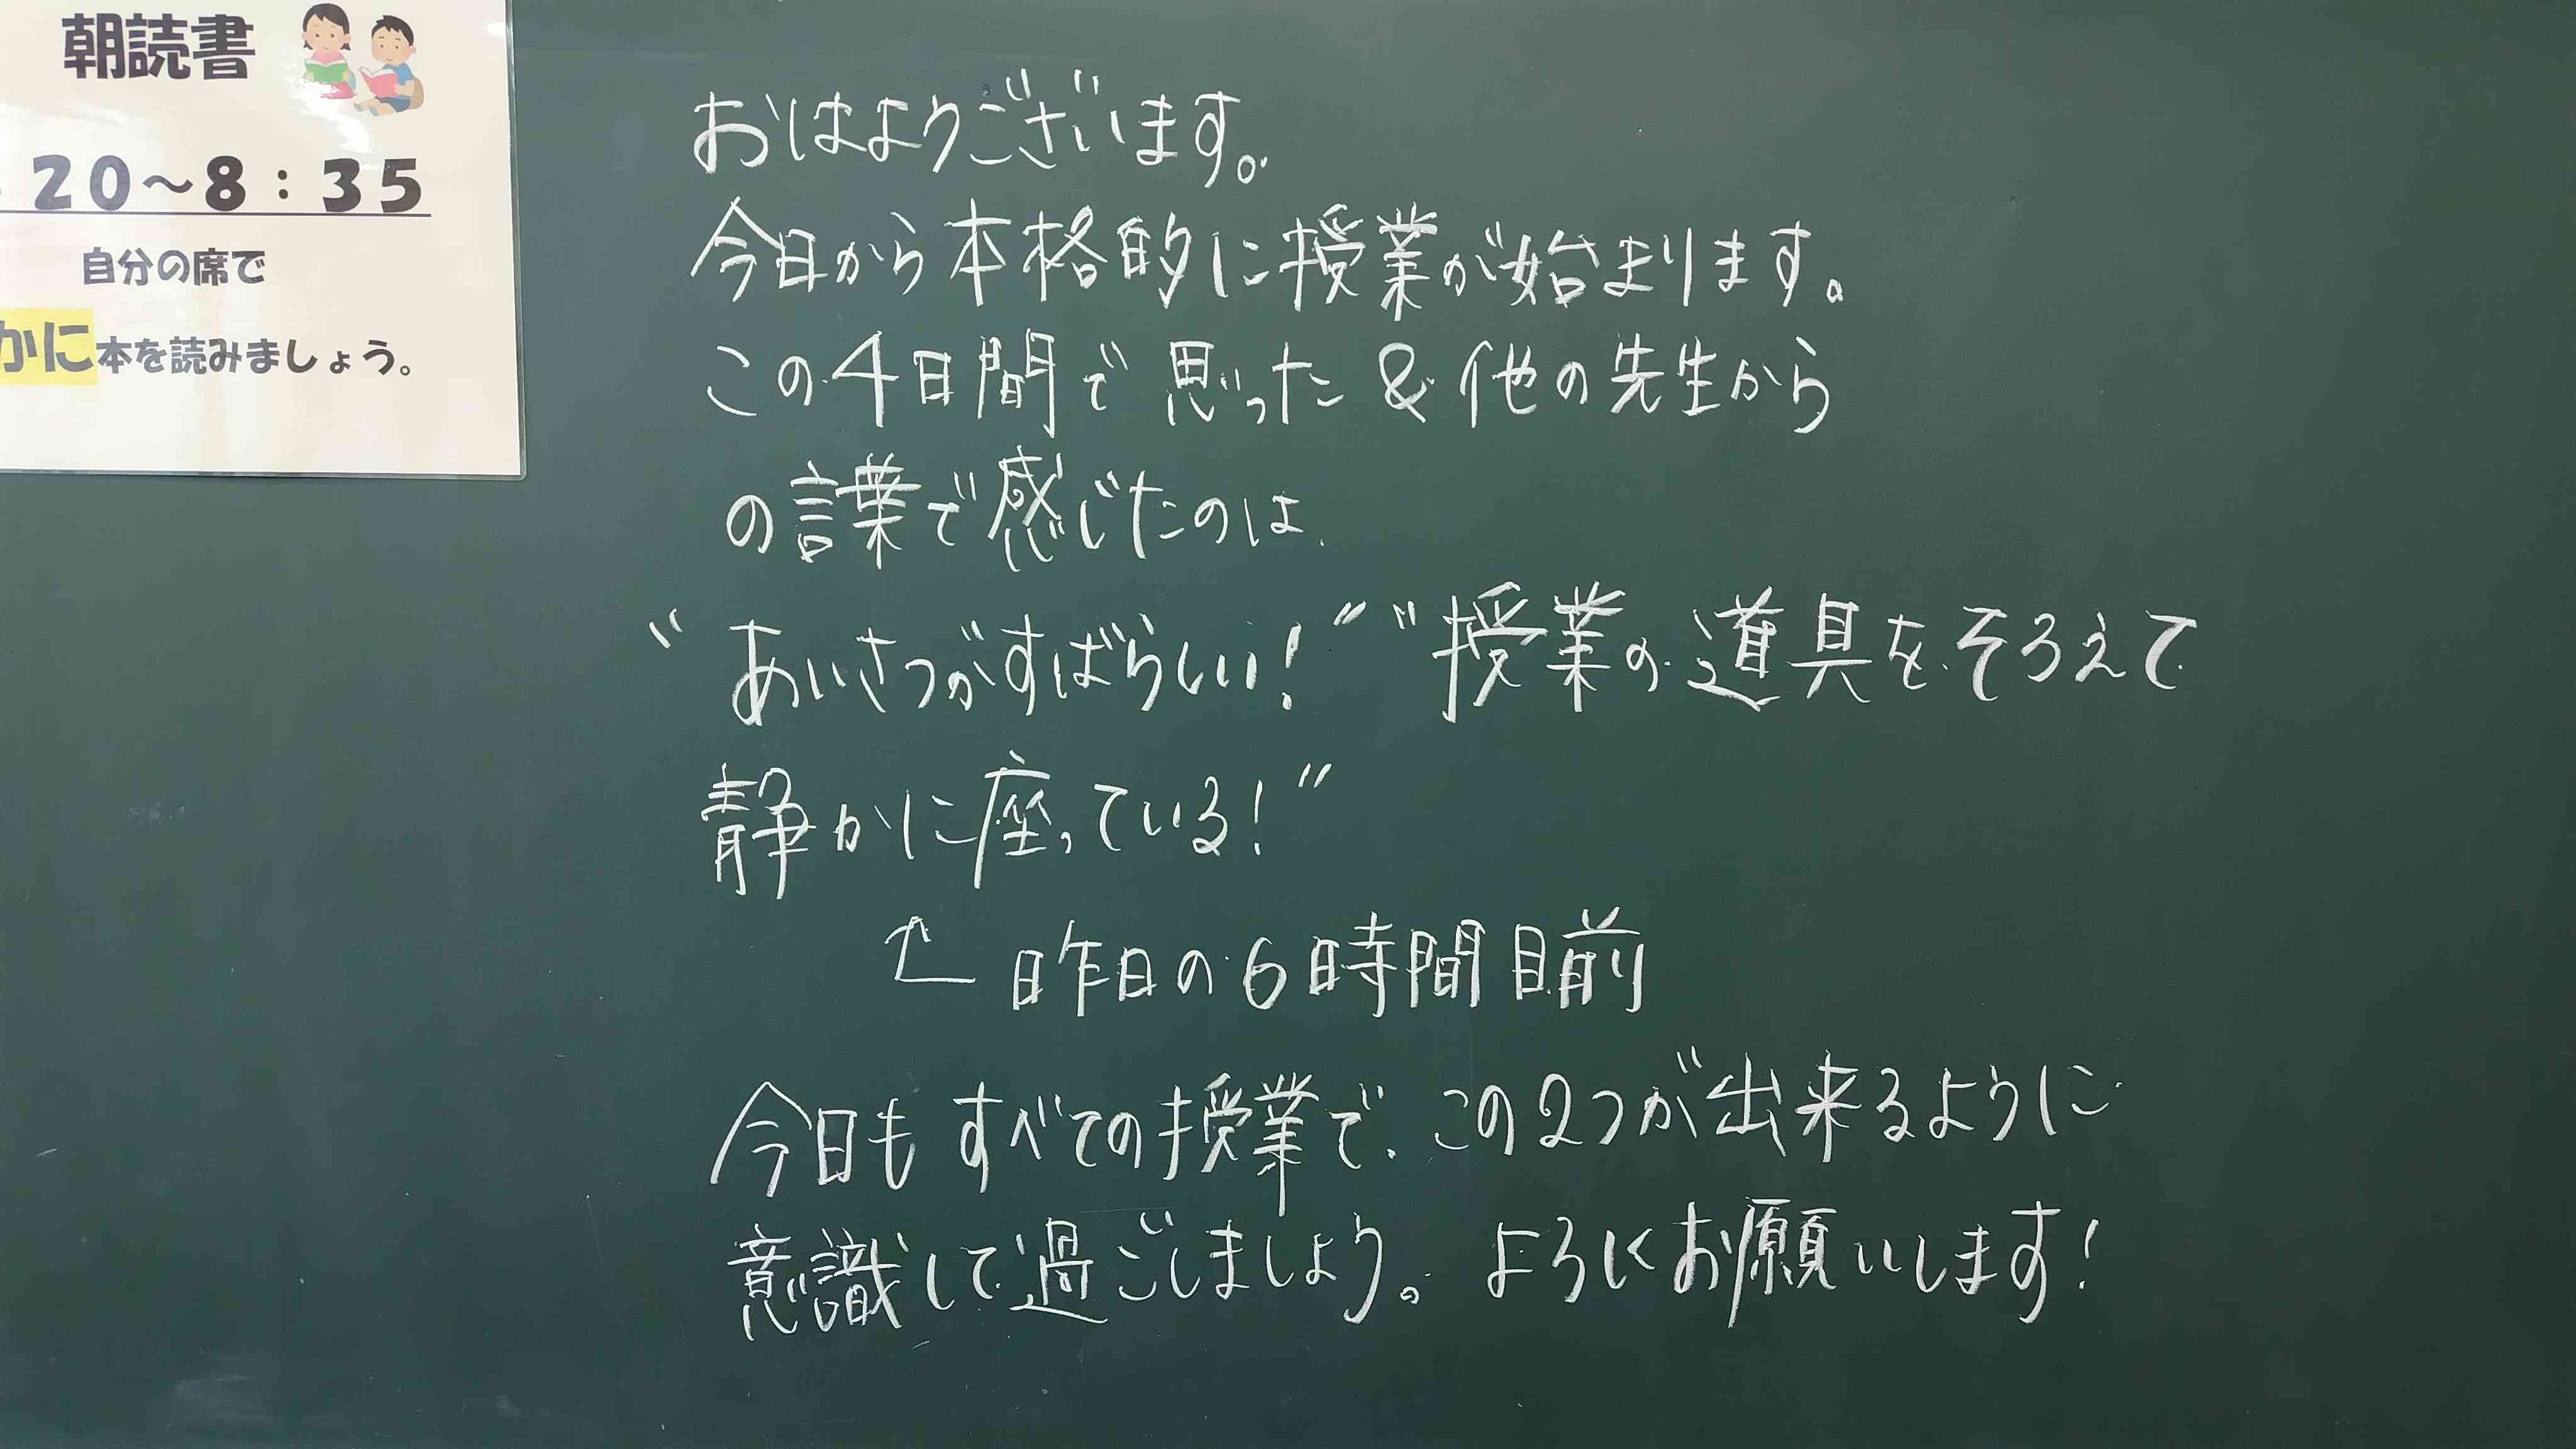 朝読書
20～8：35
自分の席で
かに本を読みましょう。
おはようございます。
今日から本格的に授業が始まります。
この4日間で思った&他の先生から
の言葉で感じたのは、
"あいさつがすばらしい!" "授業の道具をそろえて
静かに座っている!"
昨日の6時間目前
今日もすべての授業で、この2つが出来るように
意識して過ごしましょう。よろしくお願いします!